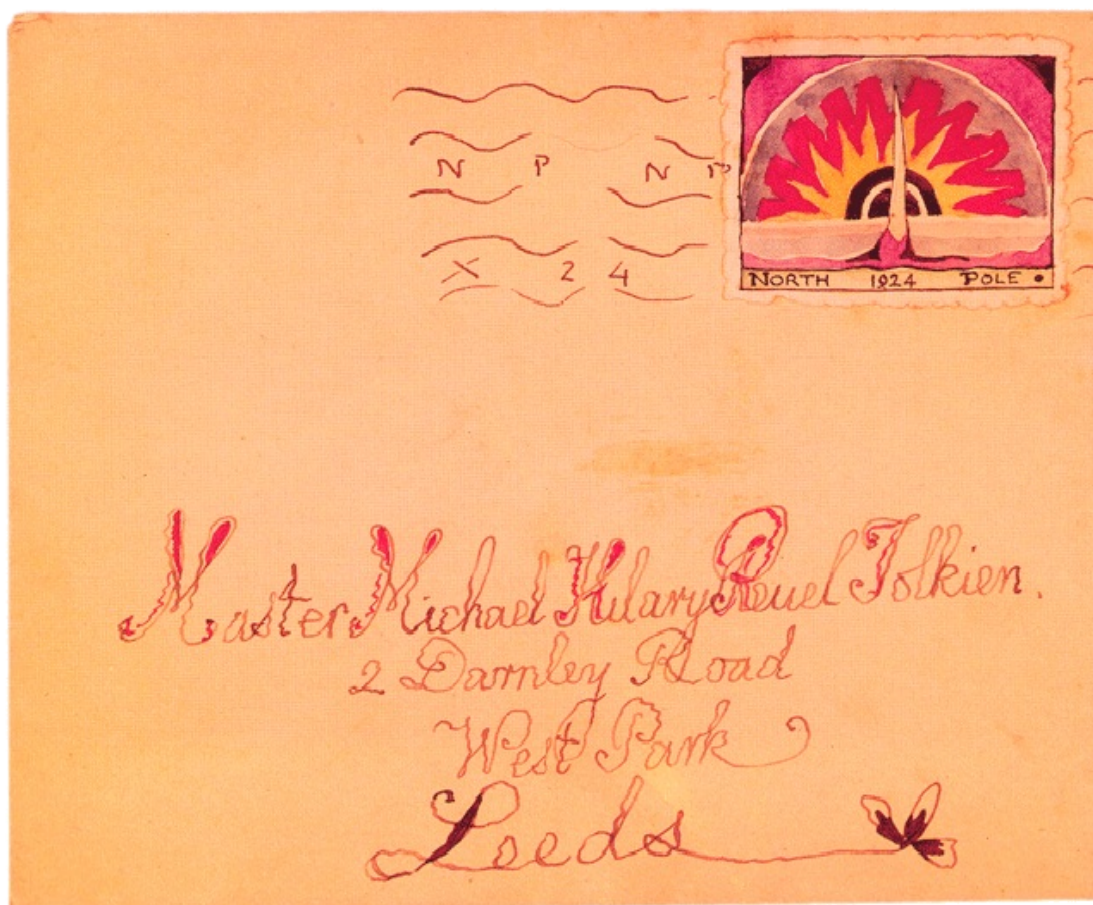 N P N P
X 2 4
NORTH 1924 POLE •
Master Michael Hilary Reuel Tolkien.
2 Darnley Road
West Park
Leeds